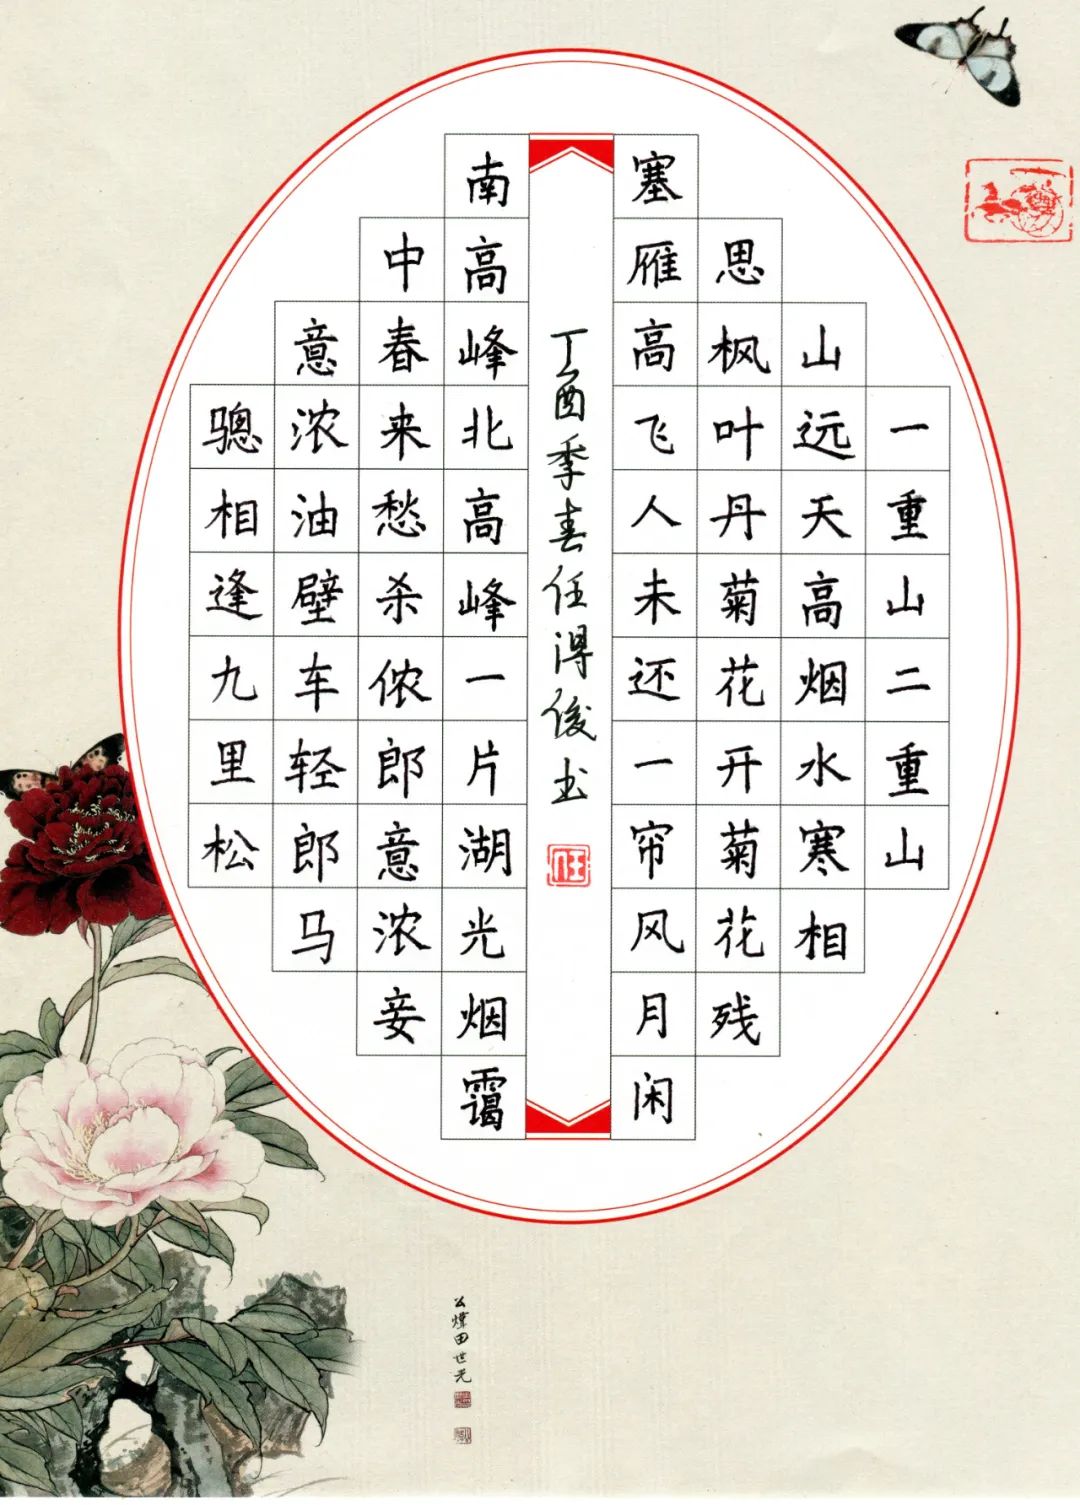 一重山二重山
山远天高烟水寒相
思枫叶丹菊花开菊花残
塞雁高飞人未还一帘风月闲
丁酉季春任得俊书
任
南高峰北高峰一片湖光烟霭
中春来愁杀侬郎意浓妾
意浓油壁车轻郎马
骢相逢九里松
田世光